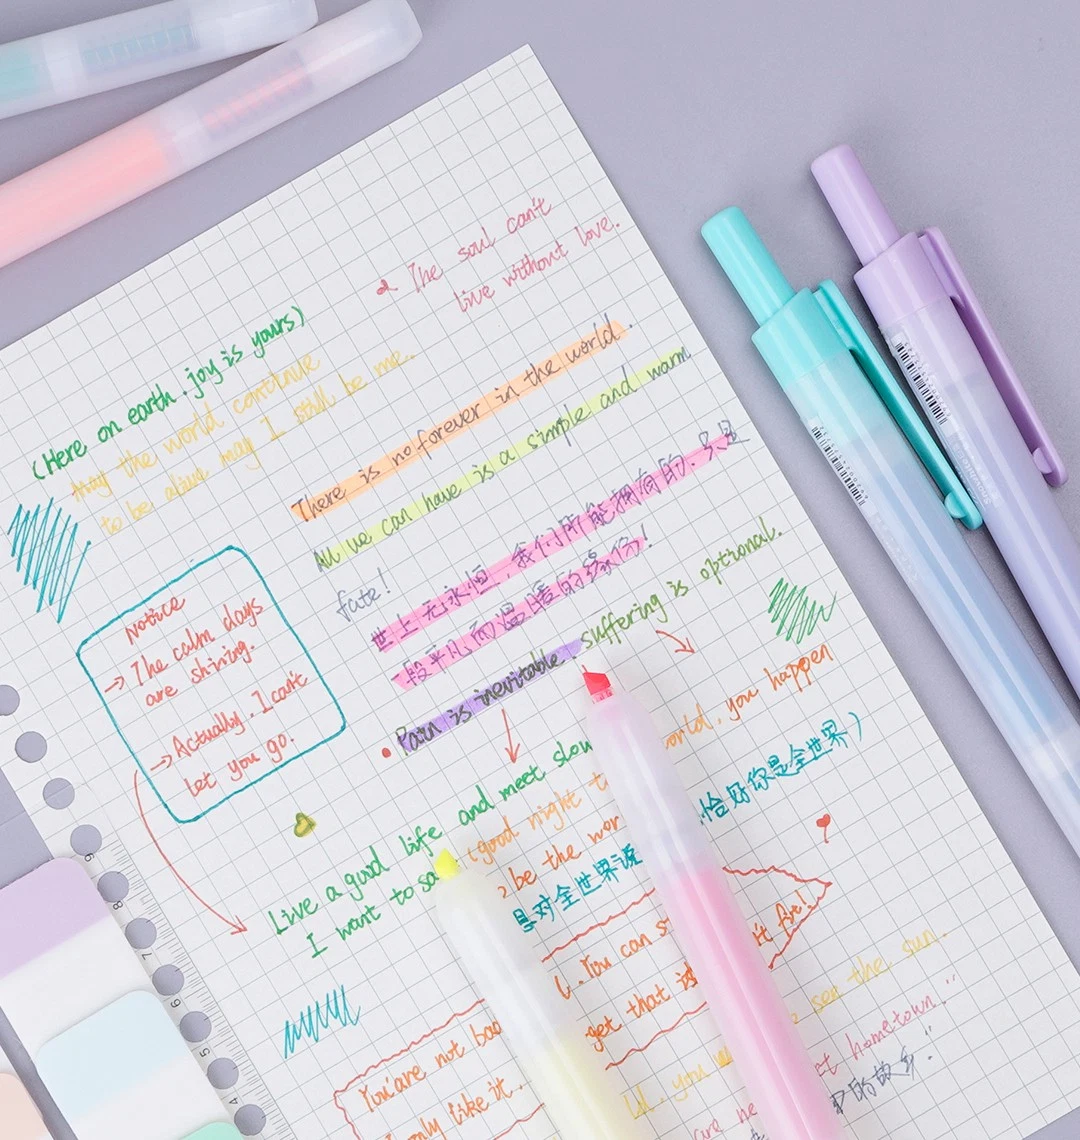 The soul can't
live without love.
(Here on earth. joy is yours)
May the world continue
to be alive may I still be me.
There is no forever in the world.
All we can have is a simple and warm
fate!
世上无永恒,我们所能拥有的,只是
一段平凡而温暖的缘份!
Pain is inevitable. suffering is optional.
Notice
→ The calm days
are shining.
→ Actually. I can't
let you go.
Live a good life and meet slow
I want to sa
(good night t world. you happen
be the wor 恰好你是全世界)
是对全世界说
You can s
get that is 't fit!
You're not bad
only like it.
see the sun.
ld. you a
et hometown.
are ne
中的故乡."
9
8
7
6
5
4